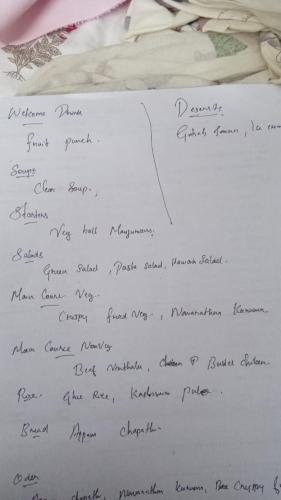 Welcome Drink
fruit punch.
Soups
Clear Soup.,
Starters
Veg ball Manjurian.
Salads
Green Salad, Pasta salad, Hawain Salad.
Main Course Veg.
Crispy fried Veg., Navarathn Kuruma
Main Course Nonveg
Beef Vinthalu, Butter Chicken
Rice. Ghee Rice, Kashmiri Pulao.
Bread Appam Chapathi
Deserts.
Gulab Jamun, Ice cream
Oder
chapathi, Navarathn Kuruma, Bee Cryspy